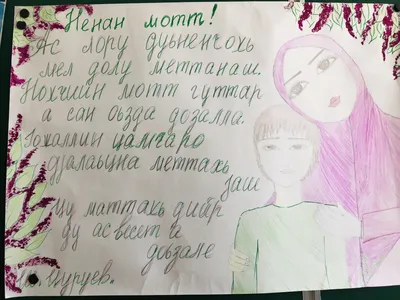 Ненан мотт!
Ас лору дуьненчохь
мел долу меттанаш.
Нохчийн мотт гуттар
а сан оьзда дозалла.
цамгаро
меттахь
Цу маттахь дийр
ду ас весет а
доьзале
Ш. Цуруев.